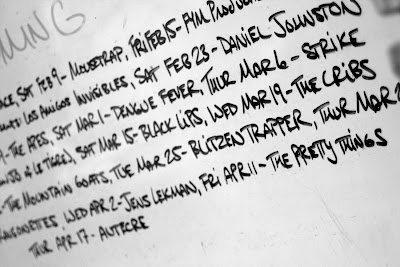 MING
ACE, SAT FEB 9 - MOUSETRAP, FRI FEB 15 - FYM PRODUC
LOS AMIGOS INVISIBLES, SAT FEB 23 - DANIEL JOHNSTON
- THE APES, SAT MAR 1 - DENGUE FEVER, THUR MAR 6 - STRIKE
OF LE TIGRE), SAT MAR 15 - BLACK LIPS, WED MAR 19 - THE CRIBS
- THE MOUNTAIN GOATS, TUE MAR 25 - BLITZEN TRAPPER, THUR MAR 2
RAVEONETTES, WED APR 2 - JENS LEKMAN, FRI APR 11 - THE PRETTY THINGS
THUR APR 17 - AUTECRE